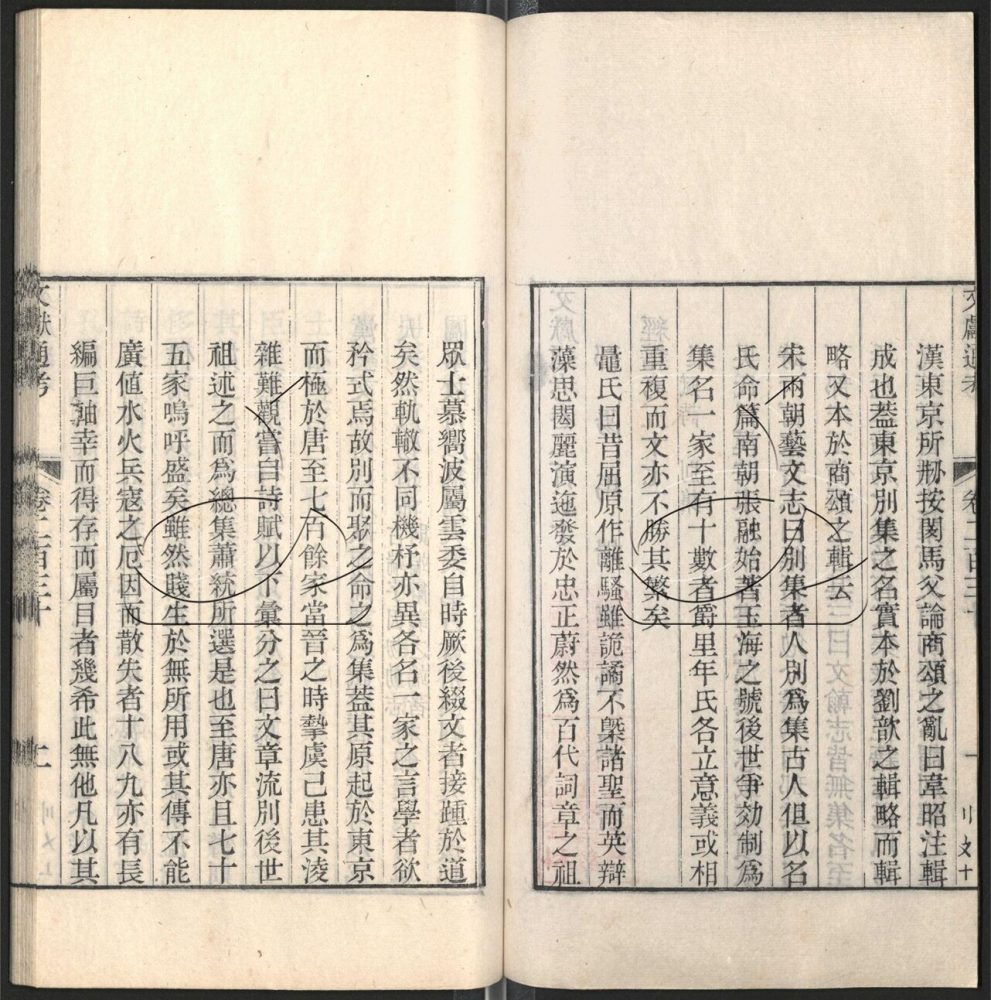 文獻通考 卷二百三十 一
漢東京所刱按閔馬父論商頌之亂曰韋昭注輯
成也葢東京別集之名實本於劉歆之輯略而輯
略又本於商頌之輯云
宋兩朝藝文志曰別集者人別爲集古人但以名
氏命篇南朝張融始著玉海之號後世爭効制爲
集名一家至有十數者爵里年氏各立意義或相
重複而文亦不勝其繁矣
鼂氏曰昔屈原作離騷雖詭譎不槩諸聖而英辯
藻思閎麗演迤發於忠正蔚然爲百代詞章之祖
眾士慕嚮波屬雲委自時厥後綴文者接踵於道
矣然軌轍不同機杼亦異各名一家之言學者欲
矜式焉故別而聚之命之爲集葢其原起於東京
而極於唐至七百餘家當晉之時摯虞已患其淩
雜難觀嘗自詩賦以下彙分之曰文章流別後世
祖述之而爲總集蕭統所選是也至唐亦且七十
五家嗚呼盛矣雖然賤生於無所用或其傳不能
廣値水火兵寇之厄因而散失者十八九亦有長
編巨軸幸而得存而屬目者幾希此無他凡以其
文獻通考 卷二百三十 二